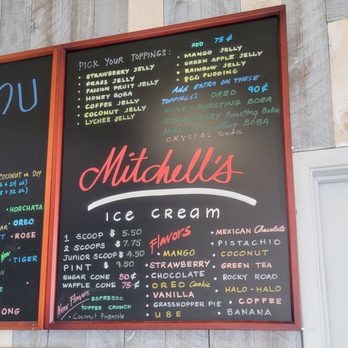 NU
COCONUT or SOY
HORCHATA
OREO
ROSE
TIGER
ONG
PICK YOUR TOPPINGS:
STRAWBERRY JELLY
GRASS JELLY
PASSION FRUIT JELLY
HONEY BOBA
COFFEE JELLY
COCONUT JELLY
LYCHEE JELLY
ADD 75¢
MANGO JELLY
GREEN APPLE JELLY
RAINBOW JELLY
EGG PUDDING
Add EXTRA ON THESE
TOPPINGS: OREO 90¢
HONEY BURSTING BOBA
STRAWBERRY Bursting Boba
BOBA
CRYSTAL Boba
Mitchell's
ICE CREAM
1 SCOOP $ 5.50
2 SCOOPS $ 7.75
JUNIOR SCOOP $ 4.50
PINT $ 9.50
SUGAR CONE 50¢
WAFFLE CONE 75¢
New Flavors
ESPRESSO
TOFFEE CRUNCH
Coconut Pineapple
Flavors
MANGO
STRAWBERRY
CHOCOLATE
OREO Cookie
VANILLA
GRASSHOPPER PIE
UBE
MEXICAN Chocolate
PISTACHIO
COCONUT
GREEN TEA
ROCKY ROAD
HALO-HALO
COFFEE
BANANA